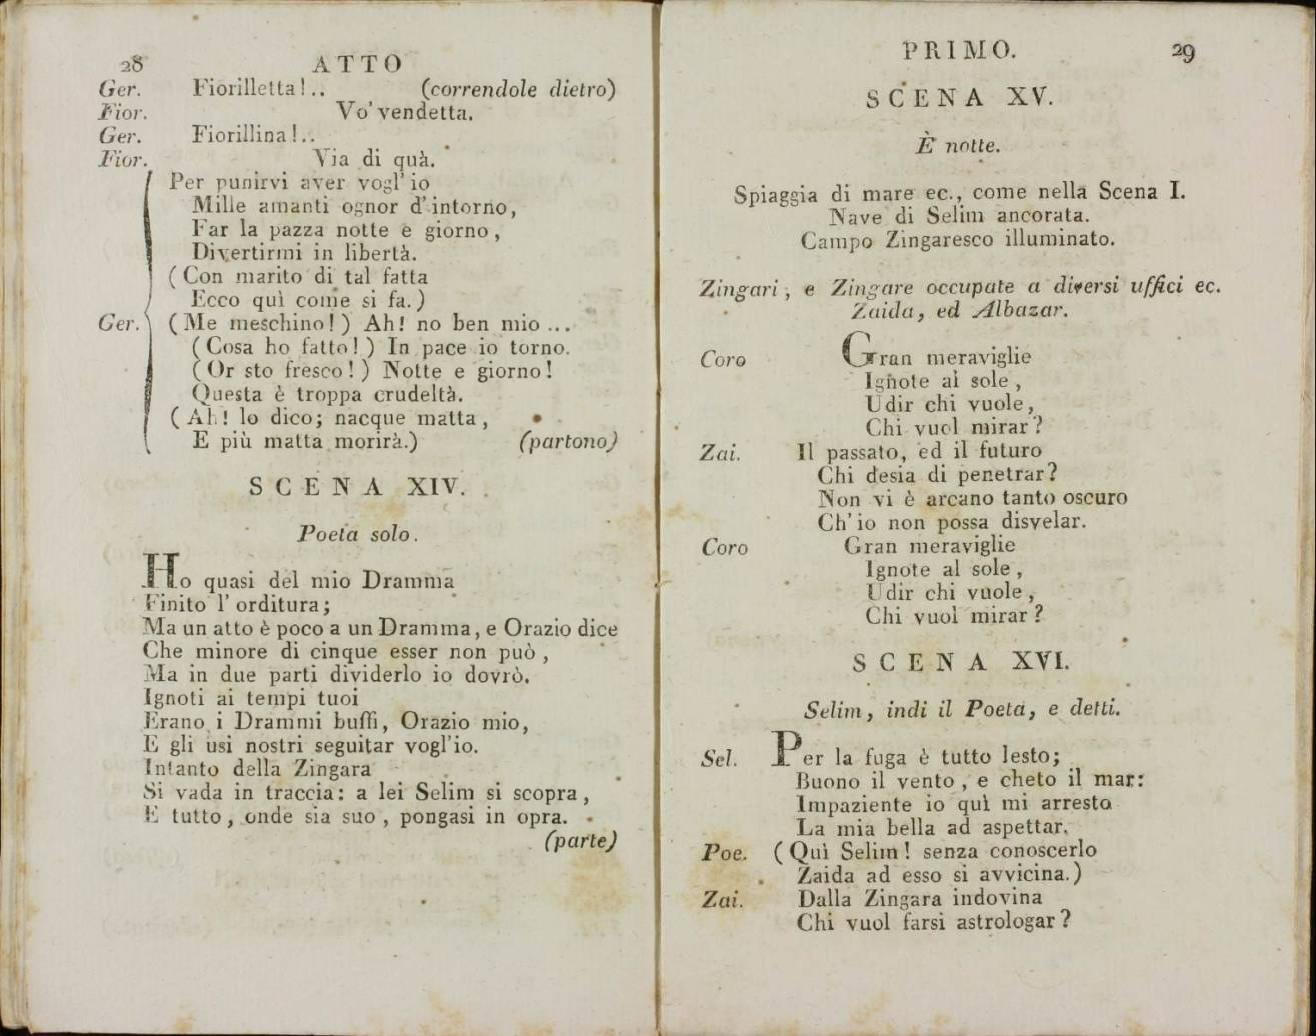 28 ATTO
Ger. Fiorilletta!.. (correndole dietro)
Fior. Vo' vendetta.
Ger. Fiorillina!..
Fior. Via di quà.
Per punirvi aver vogl' io
Mille amanti ognor d' intorno,
Far la pazza notte e giorno,
Divertirmi in libertà.
(Con marito di tal fatta
Ecco quì come si fa.)
Ger. (Me meschino!) Ah! no ben mio...
(Cosa ho fatto!) In pace io torno.
(Or sto fresco!) Notte e giorno!
Questa è troppa crudeltà.
(Ah! lo dico; nacque matta,
E più matta morirà.) (partono)
SCENA XIV.
Poeta solo.
Ho quasi del mio Dramma
Finito l' orditura;
Ma un atto è poco a un Dramma, e Orazio dice
Che minore di cinque esser non può,
Ma in due parti dividerlo io dovrò.
Ignoti ai tempi tuoi
Erano i Drammi buffi, Orazio mio,
E gli usi nostri seguitar vogl'io.
Intanto della Zingara
Si vada in traccia: a lei Selim si scopra,
E tutto, onde sia suo, pongasi in opra.
(parte)
PRIMO. 29
SCENA XV.
È notte.
Spiaggia di mare ec., come nella Scena I.
Nave di Selim ancorata.
Campo Zingaresco illuminato.
Zingari, e Zingare occupate a diversi uffici ec.
Zaida, ed Albazar.
Coro Gran meraviglie
Ignote al sole,
Udir chi vuole,
Chi vuol mirar?
Zai. Il passato, ed il futuro
Chi desia di penetrar?
Non vi è arcano tanto oscuro
Ch' io non possa disvelar.
Coro Gran meraviglie
Ignote al sole,
Udir chi vuole,
Chi vuol mirar?
SCENA XVI.
Selim, indi il Poeta, e detti.
Sel. Per la fuga è tutto lesto;
Buono il vento, e cheto il mar:
Impaziente io quì mi arresto
La mia bella ad aspettar.
Poe. (Quì Selim! senza conoscerlo
Zaida ad esso si avvicina.)
Zai. Dalla Zingara indovina
Chi vuol farsi astrologar?